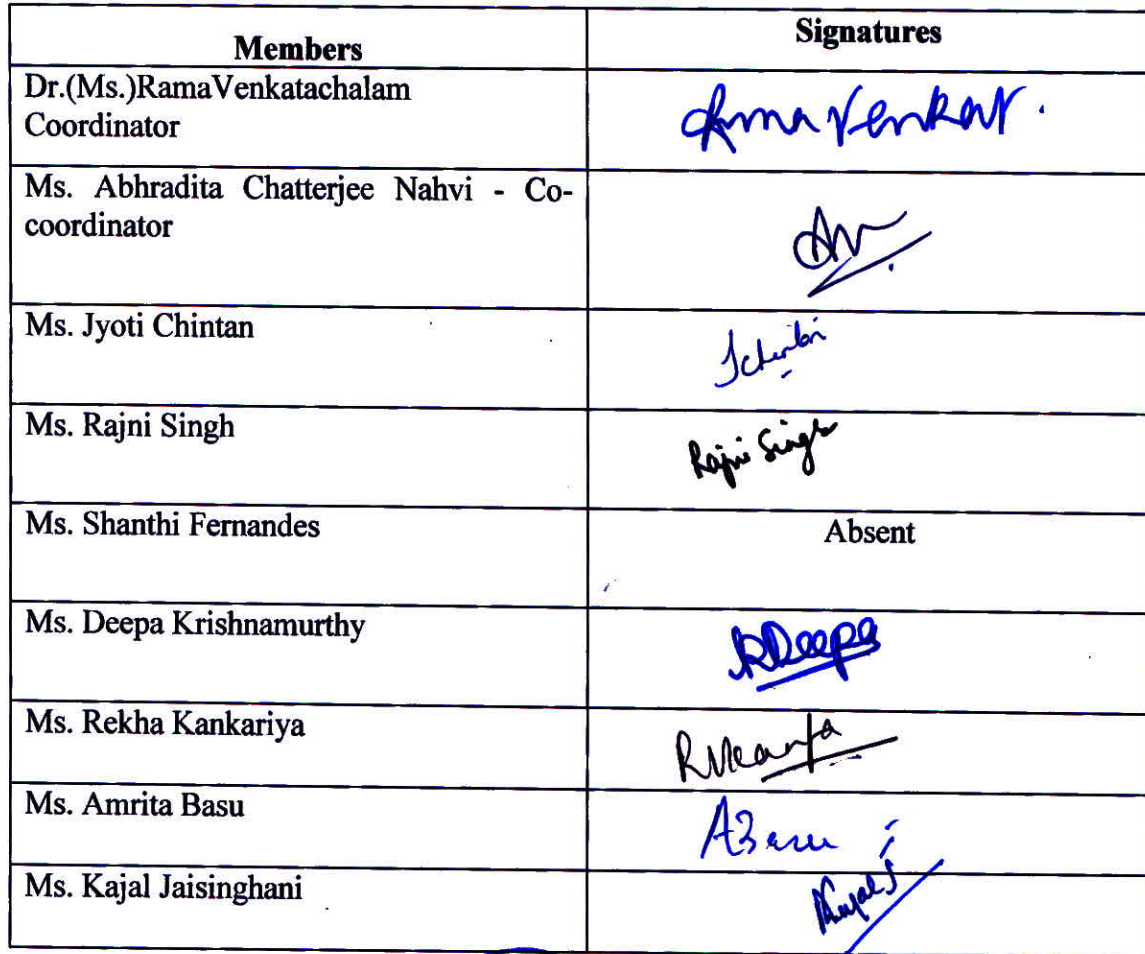 Members
Signatures
Dr.(Ms.)RamaVenkatachalam
Coordinator
Rama Venkat.
Ms. Abhradita Chatterjee Nahvi - Co-
coordinator
Ms. Jyoti Chintan
Ms. Rajni Singh
Rajni Singh
Ms. Shanthi Fernandes
Absent
Ms. Deepa Krishnamurthy
KDeepa
Ms. Rekha Kankariya
Ms. Amrita Basu
ABasu
Ms. Kajal Jaisinghani